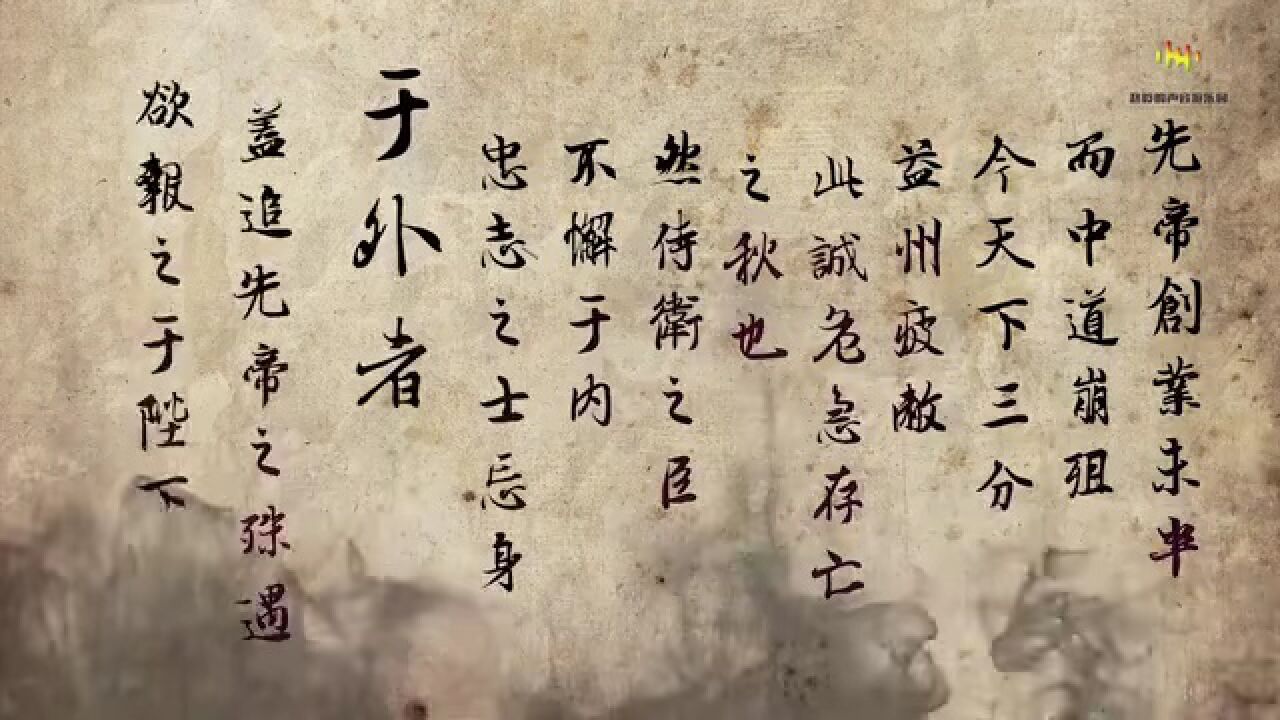 先帝創業未半
而中道崩殂
今天下三分
益州疲敝
此誠危急存亡
之秋也
然侍衛之臣
不懈于内
忠志之士忘身
于外者
蓋追先帝之殊遇
欲報之于陛下